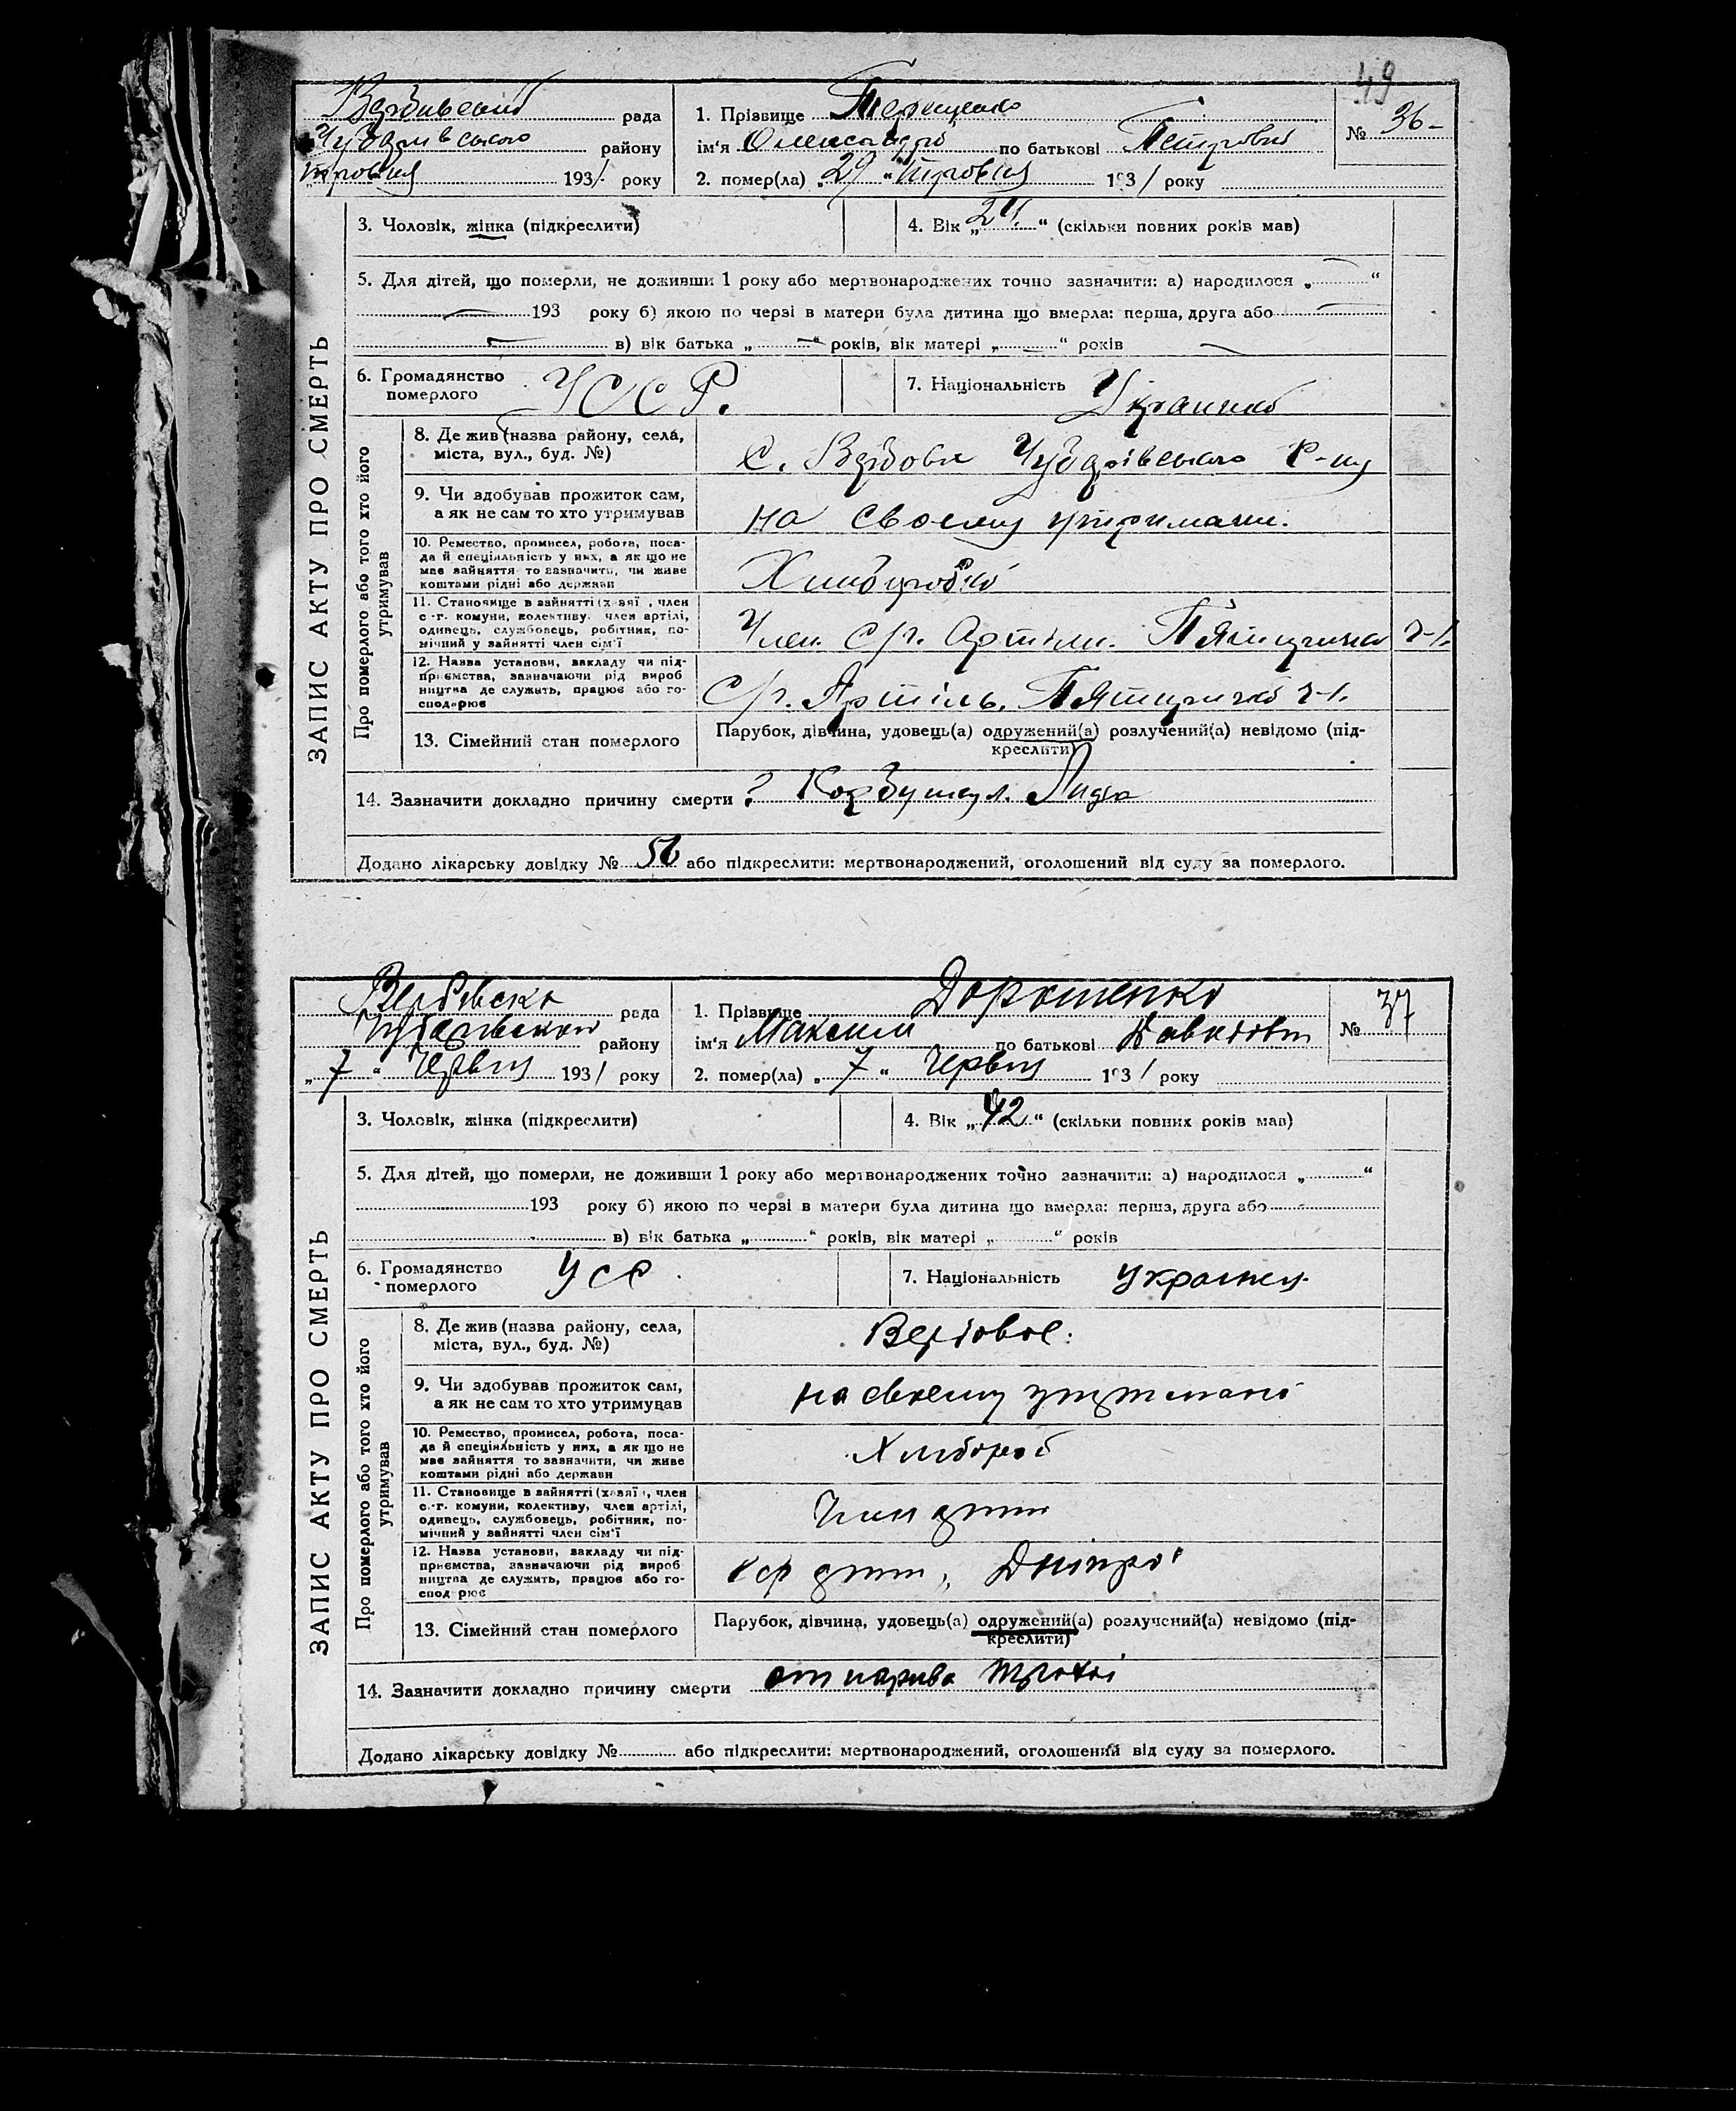 49
ЗАПИС АКТУ ПРО СМЕРТЬ
Вербивський рада
Чубарівського району
травня 1931 року
1. Прізвище Терещенко
ім'я Олександра по батькові Петровна
2. помер(ла) „29" травня 1931 року
№ 36-
3. Чоловік, жінка (підкреслити)
4. Вік „24" (скільки повних років мав)
5. Для дітей, що померли, не доживши 1 року або мертвонароджених точно зазначити: а) народилося „ "
193 року б) якою по черзі в матери була дитина що вмерла: перша, друга або
в) вік батька „ " років, вік матері „ " років
6. Громадянство
померлого УССР.
7. Національність
Про померлого або того хто його
утримував
8. Де жив (назва району, села,
міста, вул., буд. №)
с. Вербове Чубарівського Р-ну
9. Чи здобував прожиток сам,
а як не сам то хто утримував
на своему утримані.
10. Ремество, промисел, робота, поса-
да й спеціяльність у них, а як що не
має зайняття то зазначити, чи живе
коштами рідні або держави
11. Становище в зайнятті (хазяї, член
с.-г. комуни, колективу, член артілі,
одинець, службовець, робітник, по-
мічний у зайнятті член сім'ї
Член с/г. Артіли.
12. Назва установи, закладу чи під-
приємства, зазначаючи рід вироб
ництва де служить, працює або го-
сподарює
С/г. Артіль.
13. Сімейний стан померлого
Парубок, дівчина, удовець(а) одружений(а) розлучений(а) невідомо (під-
креслити)
14. Зазначити докладно причину смерти ?
Додано лікарську довідку № 56 або підкреслити: мертвонароджений, оголошений від суду за померлого.
ЗАПИС АКТУ ПРО СМЕРТЬ
рада
району
„7" Червня 1931 року
1. Прізвище Дорошенко
ім'я Максим по батькові Давидович
2. помер(ла) „7" Червня 1931 року
№ 37
3. Чоловік, жінка (підкреслити)
4. Вік „42" (скільки повних років мав)
5. Для дітей, що померли, не доживши 1 року або мертвонароджених точно зазначити: а) народилося „ "
193 року б) якою по черзі в матери була дитина що вмерла: перша, друга або
в) вік батька „ " років, вік матері „ " років
6. Громадянство
померлого
7. Національність Украинец
Про померлого або того хто його
утримував
8. Де жив (назва району, села,
міста, вул., буд. №)
Вербовое.
9. Чи здобував прожиток сам,
а як не сам то хто утримував
на своему утримані
10. Ремество, промисел, робота, поса-
да й спеціяльність у них, а як що не
має зайняття то зазначити, чи живе
коштами рідні або держави
Хлибороб
11. Становище в зайнятті (хазяї, член
с.-г. комуни, колективу, член артілі,
одинець, службовець, робітник, по-
мічний у зайнятті член сім'ї
12. Назва установи, закладу чи під-
приємства, зазначаючи рід вироб
ництва де служить, працює або го-
сподарює
Дніпро
13. Сімейний стан померлого
Парубок, дівчина, удовець(а) одружений(а) розлучений(а) невідомо (під-
креслити)
14. Зазначити докладно причину смерти от нарива трохеі
Додано лікарську довідку № або підкреслити: мертвонароджений, оголошений від суду за померлого.